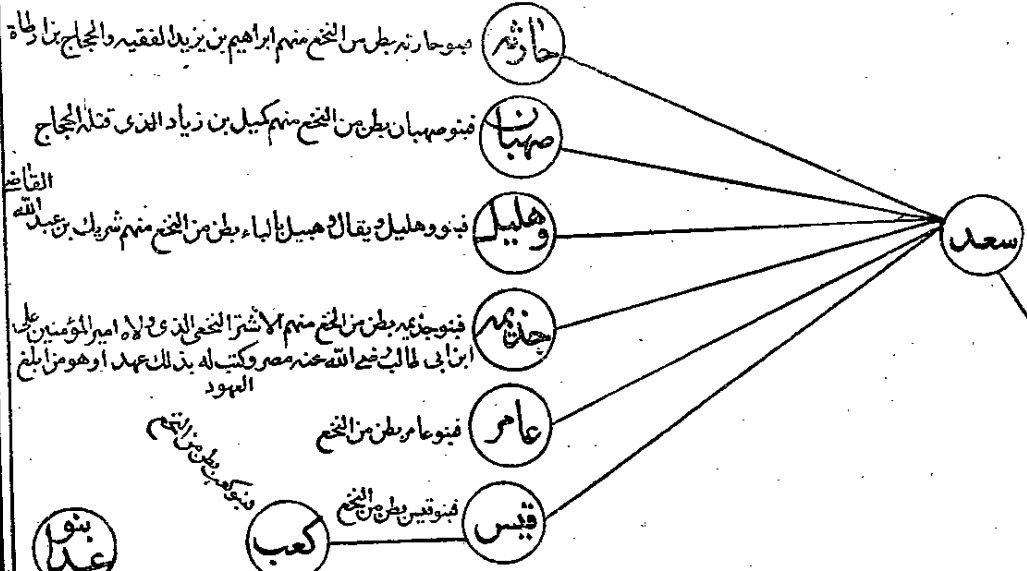 حارثه
فبنو حارثه بطن من النخع منهم ابراهيم بن يزيد الفقيه والحجاج بن ارطاة
صهبان
فبنو صهبان بطن من النخع منهم كميل بن زياد الذى قتله الحجاج
وهليل
فبنو وهليل ويقال وهبيل بالباء بطن من النخع منهم شريك بن عبد الله
القاضى
سعد
جذيمه
فبنو جذيمه بطن من النخع منهم الاشتر النخعى الذى ولاه امير المؤمنين على
ابن ابى طالب رضى الله عنه مصر وكتب له بذلك عهدا وهو من ابلغ
العهود
عامر
فبنو عامر بطن من النخع
قيس
فبنو قيس بطن من النخع
كعب
فبنو كعب بطن من النخع
بنو